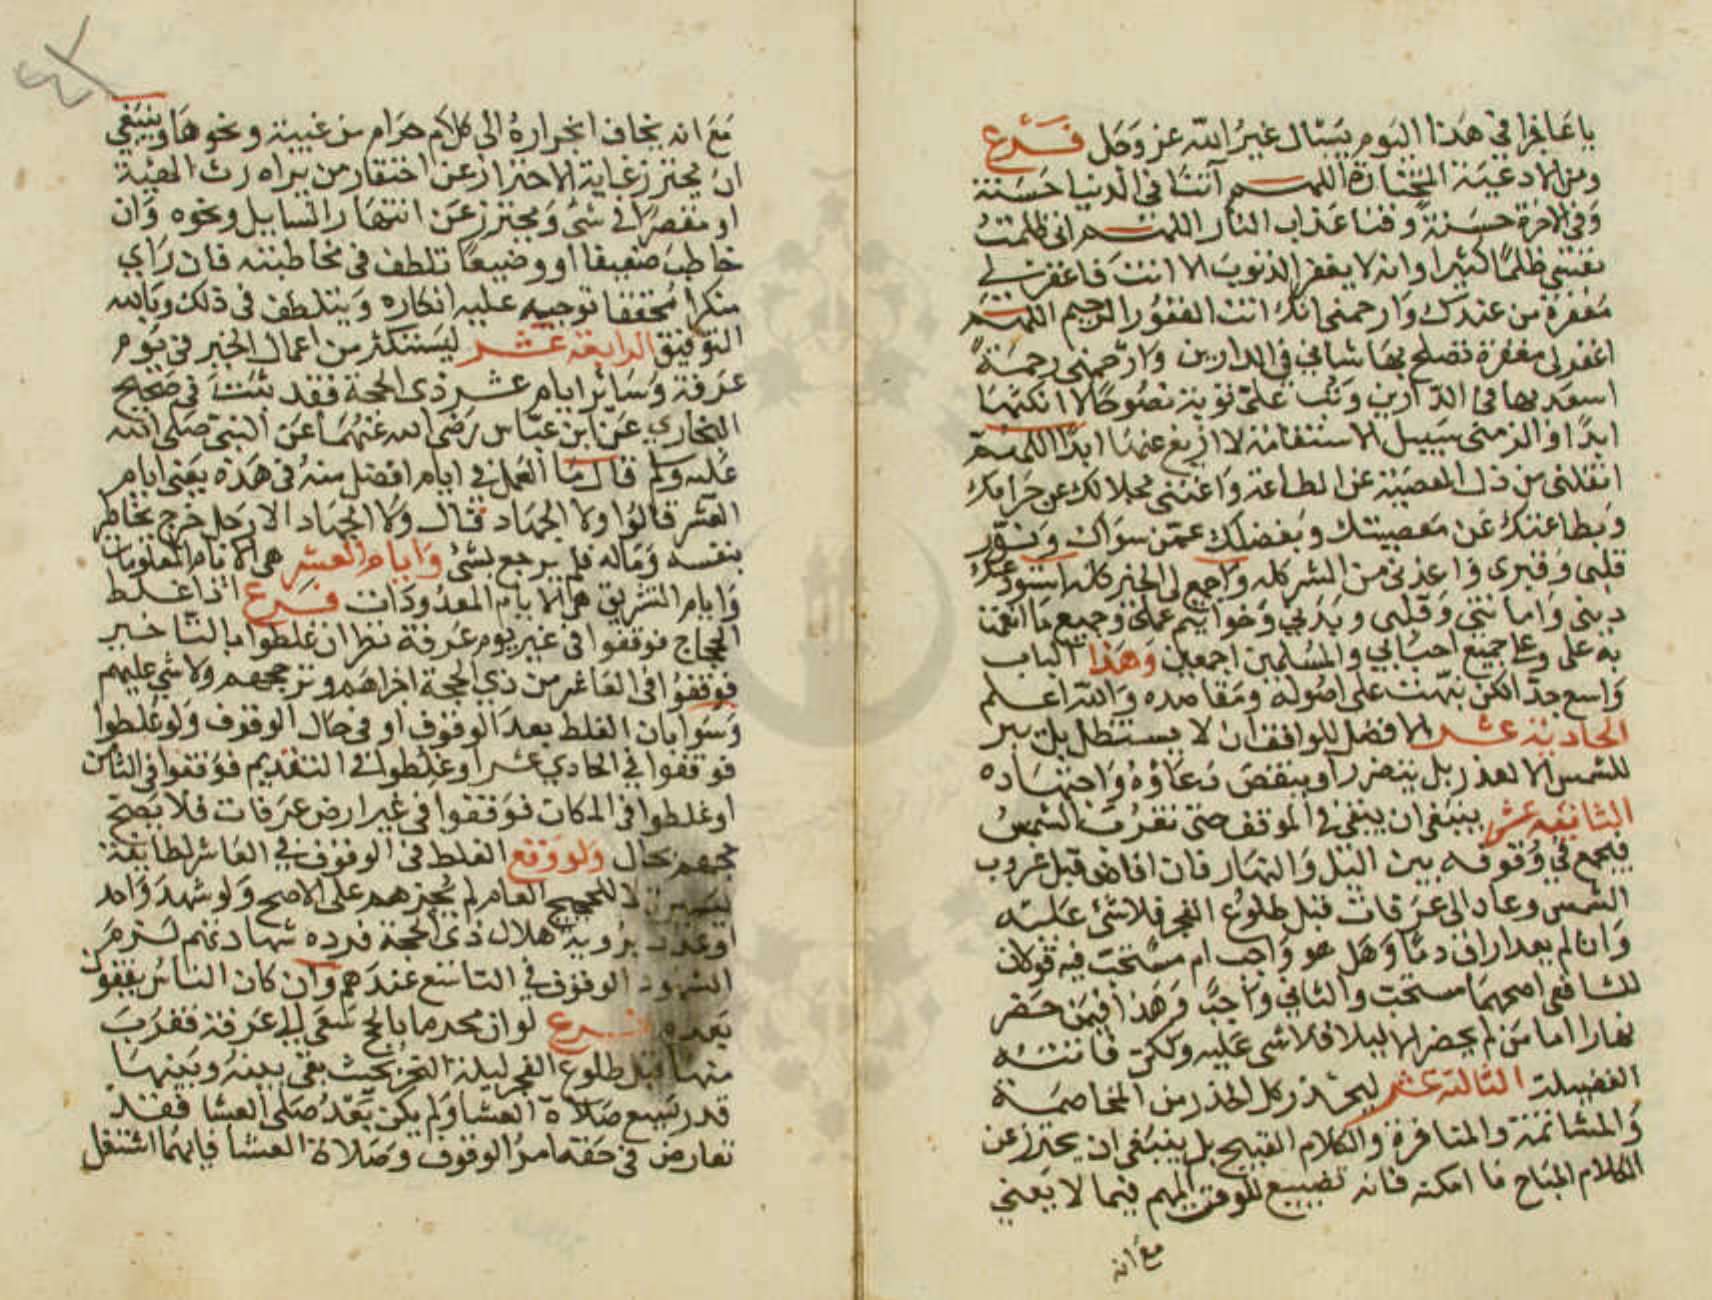 يا عاجز افي هذا اليوم يسال غير الله عز وجل فرع
ومن الادعية المختارة اللهم آتنا في الدنيا حسنة
وفي الاخرة حسنة وقنا عذاب النار اللهم اني ظلمت
نفسي ظلما كثيرا وانه لا يغفر الذنوب الا انت فاغفر لي
مغفرة من عندك وارحمني انك انت الغفور الرحيم اللهم
اغفر لي مغفرة تصلح بها شاني في الدارين وارحمني رحمة
اسعد بها في الدارين وتب علي توبة نصوحا لا انكثها
ابدا والزمني سبيل الاستقامة لا ازيغ عنها ابدا اللهم
انقلني من ذل المعصية عن الطاعة واغنني بحلالك عن حرامك
وبطاعتك عن معصيتك وبفضلك عمن سواك ونور
قلبي وقبري واعذني من الشر كله واجمع لي الخير كله استودعتك
ديني وامانتي وقلبي وبدني وخواتيم عملي وجميع ما انعمت
به علي وعلى جميع احبابي والمسلمين اجمعين وهذا الباب
واسع جدا لكن نبهت على اصوله ومقاصده والله اعلم
الحادية عشر الافضل للواقف ان لا يستظل بل يبرز
للشمس الا لعذر بل يتضرر او ينقص دعاؤه واجتهاده
الثانية عشر ينبغي ان يبقى في الموقف حتى تغرب الشمس
فيجمع في وقوفه بين الليل والنهار فان افاض قبل غروب
الشمس وعاد الى عرفات قبل طلوع الفجر فلا شئ عليه
وان لم يعد اراق دما وهل هو واجب ام مستحب فيه قولان
للشافعي اصحهما مستحب والثاني واجب وهذا فيمن حضر
نهارا اما من لم يحضر الا ليلا فلا شي عليه ولكن فاتته
الفضيلة الثالثة عشر ليحذر كل الحذر من المخاصمة
والمشاتمة والمنافرة والكلام القبيح بل ينبغي ان يحترز عن
الكلام المباح ما امكنه فانه تضييع للوقت المهم فيما لا يعني
مع انه
مع انه يخاف انجراره الى كلام حرام من غيبة ونحوها وينبغي
ان يحترز غاية الاحتراز عن احتقار من يراه رث الهيئة
او مقصرا في شئ ويحترز عن انتهار السايل ونحوه وان
خاطب ضعيفا او وضيعا تلطف في مخاطبته فان راي
منكرا محققا توجيه عليه انكاره ويتلطف في ذلك وبالله
التوفيق الرابعة عشر ليستكثر من اعمال الخير في يوم
عرفة وسائر ايام عشر ذي الحجة فقد ثبت في صحيح
البخاري عن ابن عباس رضي الله عنهما عن النبي صلى الله
عليه وسلم قال ما العمل في ايام افضل منه في هذه يعني ايام
العشر قالوا ولا الجهاد قال ولا الجهاد الا رجل خرج يخاطر
بنفسه وماله فلم يرجع بشئ وايام العشر هي الايام المعلومات
وايام التشريق هي الايام المعدودات فرع اذا غلط
الحجاج فوقفوا في غير يوم عرفة نظر ان غلطوا بالتاخير
فوقفوا في العاشر من ذي الحجة اجزاهم وتم حجهم ولا شي عليهم
وسوا بان الغلط بعد الوقوف او في حال الوقوف ولو غلطوا
فوقفوا في الحادي عشر او غلطوا في التقديم فوقفوا في الثامن
او غلطوا في المكان فوقفوا في غير ارض عرفات فلا يصح
حجهم بحال ولو وقع الغلط في الوقوف في العاشر لطايفة
يسيرة لا للحجيج العام لم يجزهم على الاصح ولو شهد واحد
او عدد برؤية هلال ذي الحجة فرده شهادتهم لزم
الشهود الوقوف في التاسع عندهم وان كان الناس يقفون
بعده فرع لو ان محرما بالحج سعى الى عرفة فقرب
منها قبل طلوع الفجر ليلة النحر بحيث بقي بينه وبينها
قدر تسبيع صلاة العشا ولم يكن بعد صلى العشا فقد
تعارض في حقه امر الوقوف وصلاة العشا فايهما اشتغل